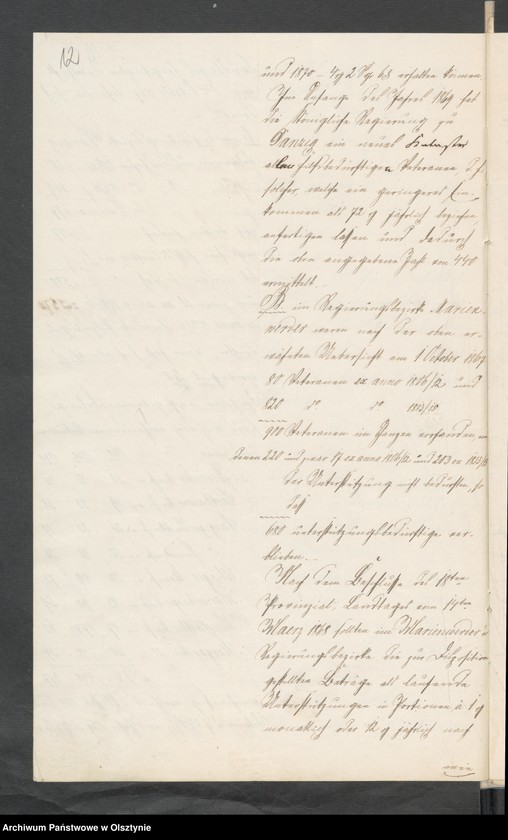 12
und 1870 – 4 2 Sgr 68 erhalten können.
Im Anfange des Jahres 1869 hat
die Königliche Regierung zu
Danzig ein neues Kataster
aller hilfsbedürftigen Veteranen, d. h.
solcher, welche ein geringeres Ein-
kommen als 72 jährlich beziehen
anfertigen lassen und dadurch
die oben angegebene Zahl von 440
ermittelt.
B. im Regierungsbezirk Marien-
werder waren nach der oben er-
wähnten Uebersicht am 1 October 1867
80 Veteranen ex anno 1806/12 und
820 do do 1813/15
900 Veteranen im Ganzen vorhanden, von
denen 220 und zwar 17 ex anno 1806/12 und 203 ex 1813/15
der Unterstützung nicht bedurften, so
daß
680 unterstützungsbedürftige ver-
blieben.
Nach dem Beschlusse des
Provinzial-Landtages vom
Maerz 1868 sollten im Marienwerder
Regierungsbezirke die zur Disposition
gestellten Beträge als laufende
Unterstützungen in Portionen à 1
monatlich oder 12 jährlich nach
Archiwum Państwowe w Olsztynie